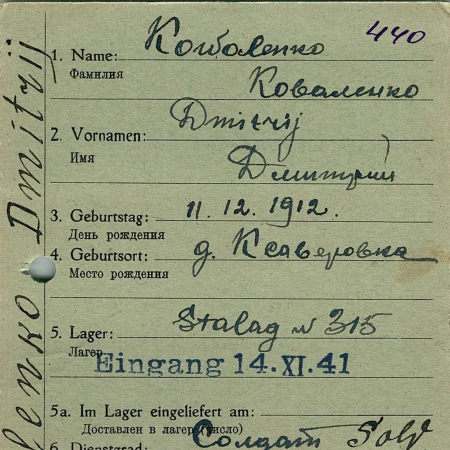 440
1. Name: Kowalenko
Фамилия Коваленко
2. Vornamen: Dmitrij
Имя Дмитрий
3. Geburtstag: 11. 12. 1912.
День рождения
4. Geburtsort: д. Ксаверовка
Место рождения
5. Lager: Stalag № 315
Лагерь
Eingang 14. XI. 41
5a. Im Lager eingeliefert am:
Доставлен в лагерь (число)
6. Dienstgrad: Солдат Sold
lenko Dmitrij